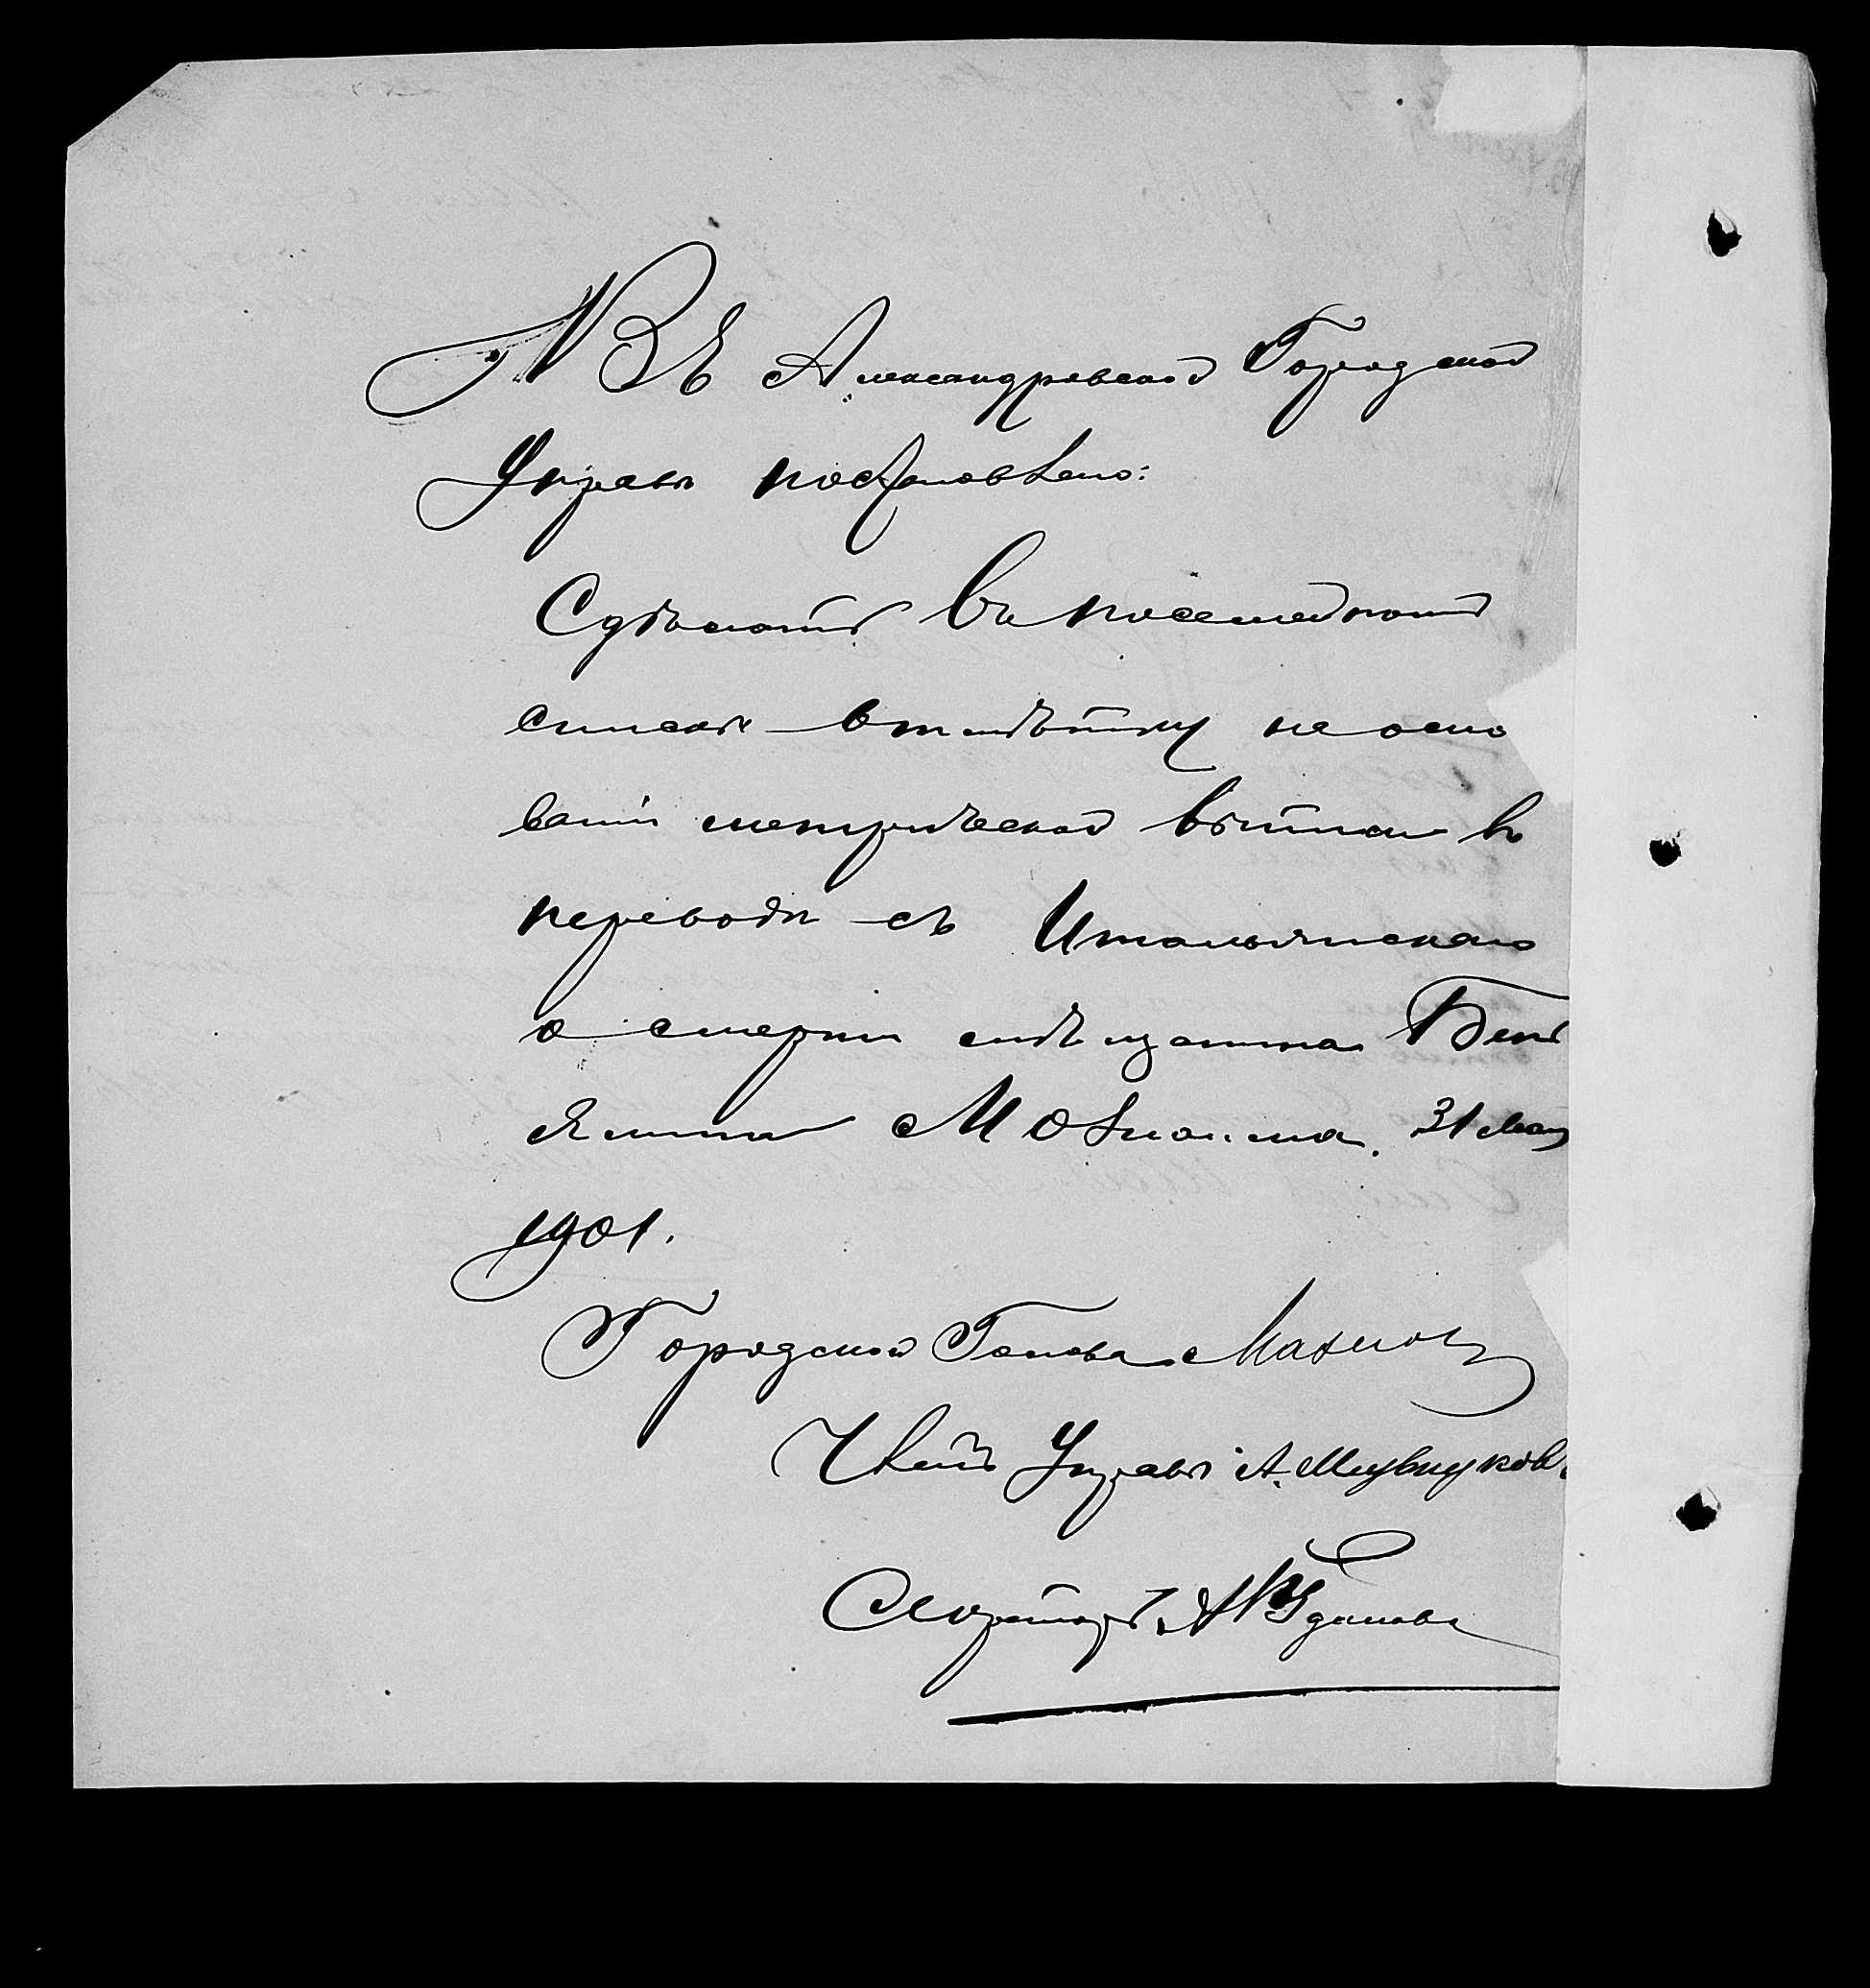 Въ Александровской Городской
Управѣ постановлено:
Сдѣлать въ посемейномъ
спискѣ отмѣтку на осно
ваніи метрической выписи въ
переводѣ съ Итальянскаго
о смерти мѣщанина Бень
ямина 31 Мая
1901.
Городской Голова
Членъ Управы А.
Секретарь